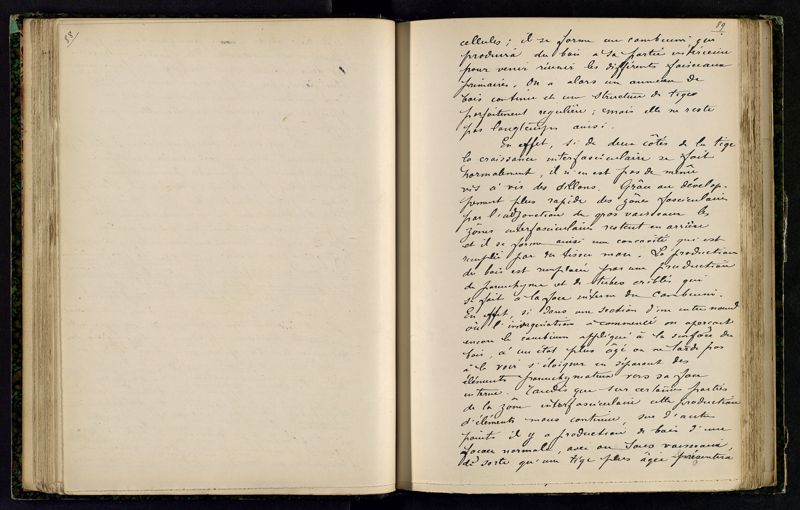 88
89
cellules; il se forme un cambium qui
produira du bois à sa partie intérieure
pour venir réunir les différents faisceaux
primaires. On a alors un anneau de
bois continu et une structure de tiges
parfaitement régulière; mais elle ne reste
pas longtemps ainsi.
En effet, si de deux côtés de la tige
la croissance interfasciculaire se fait
normalement, il n'en est pas de même
vis à vis des sillons. Grâce au dévelop-
pement plus rapide des zônes fasciculaires
par l'adjonction de gros vaisseaux les
zônes interfasciculaires restent en arrière
et il se forme ainsi une concavité qui est
remplie par du tissu mou. La production
de bois est remplacée par une production
de parenchyme et de tubes criblés qui
se fait à la face interne du cambium.
En effet, si dans une section d'un entre-noeud
où l'invagination a commencé on aperçoit
encore le cambium appliqué à la surface du
bois, à un état plus âgé on ne tarde pas
à le voir s'éloigner en séparant des
éléments parenchymateux vers sa face
interne. Tandis que sur certaines parties
de la zône interfasciculaire cette production
d'éléments mous continue, sur d'autres
points il y a production de bois d'une
façon normale, avec ou sans vaisseaux,
de sorte qu'une tige plus âgée présentera